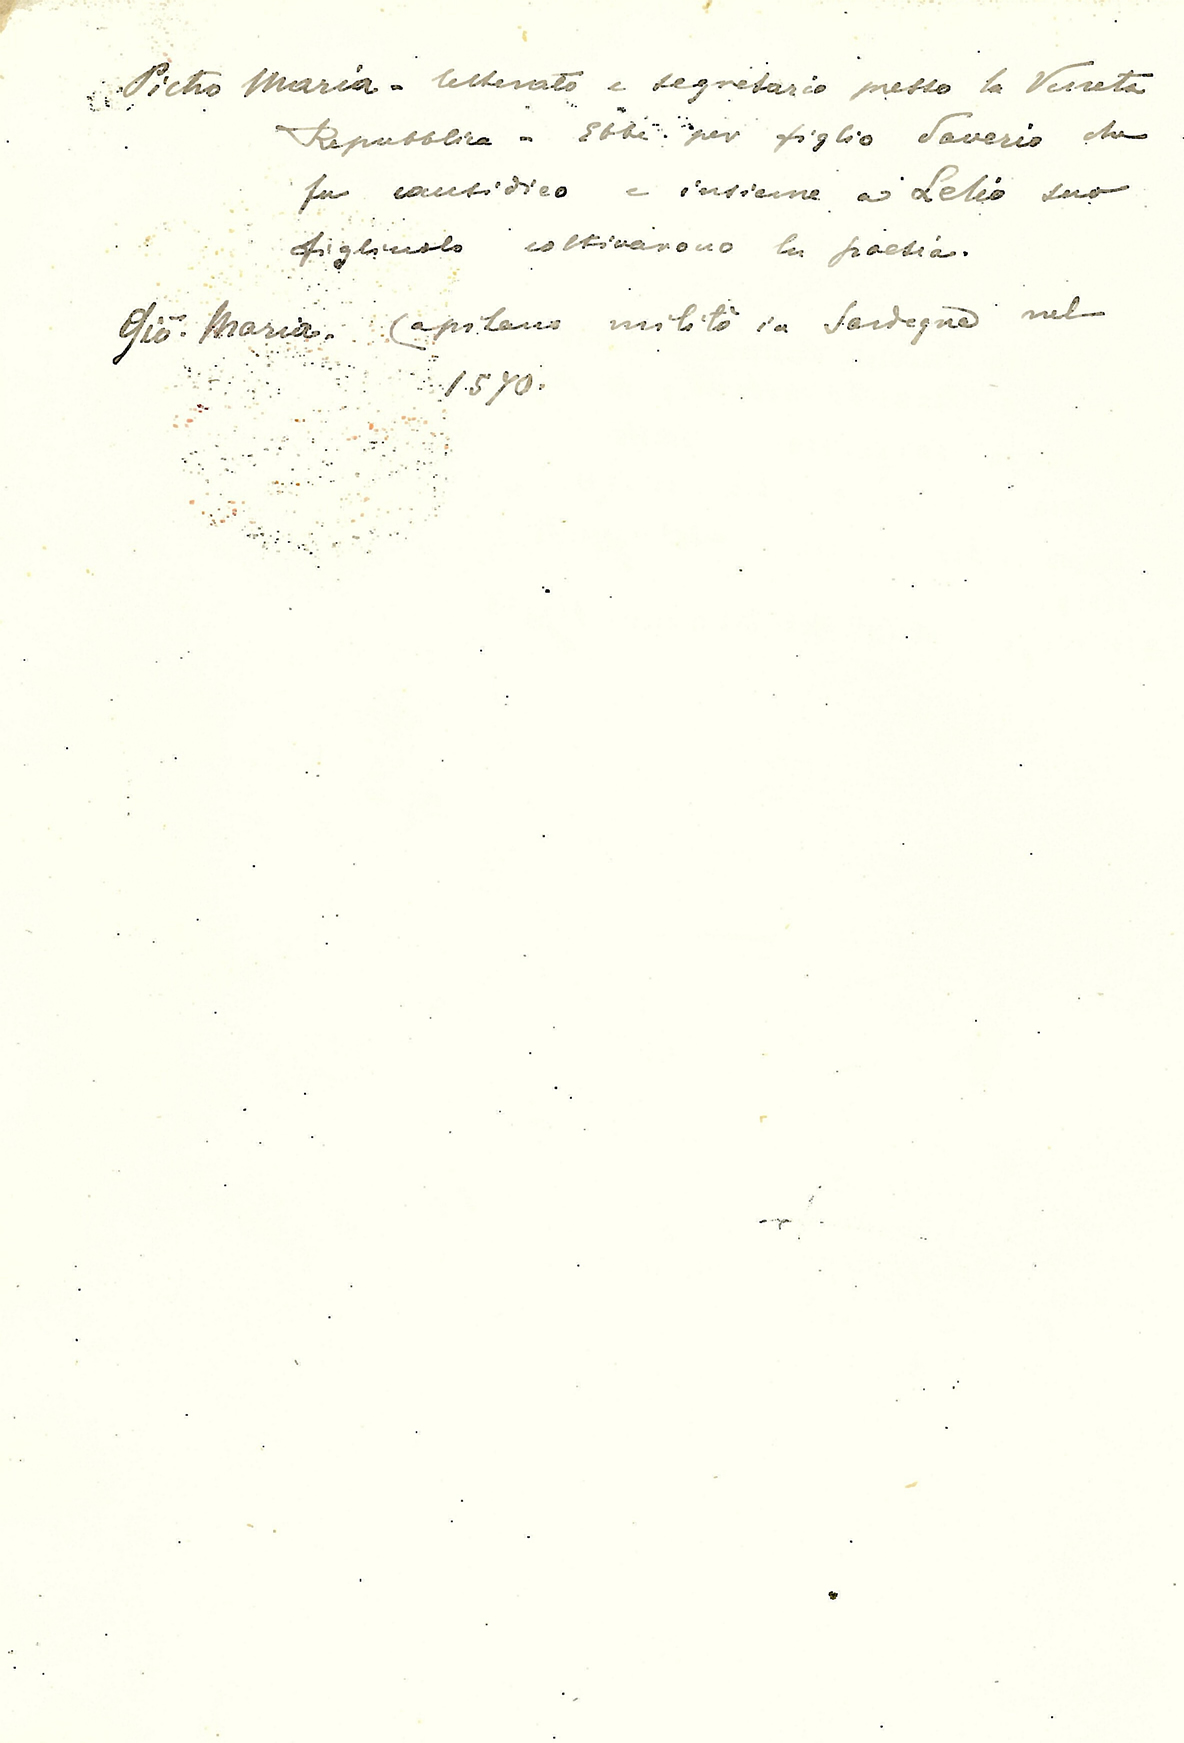 Pietro Maria - letterato e segretario presso la Veneta
Repubblica - Ebbe per figlio Saverio che
fu causidico e insieme a Lelio suo
figliuolo coltivarono la poesia.
Gio. Maria. Capitano militò in Sardegna nel
1570.